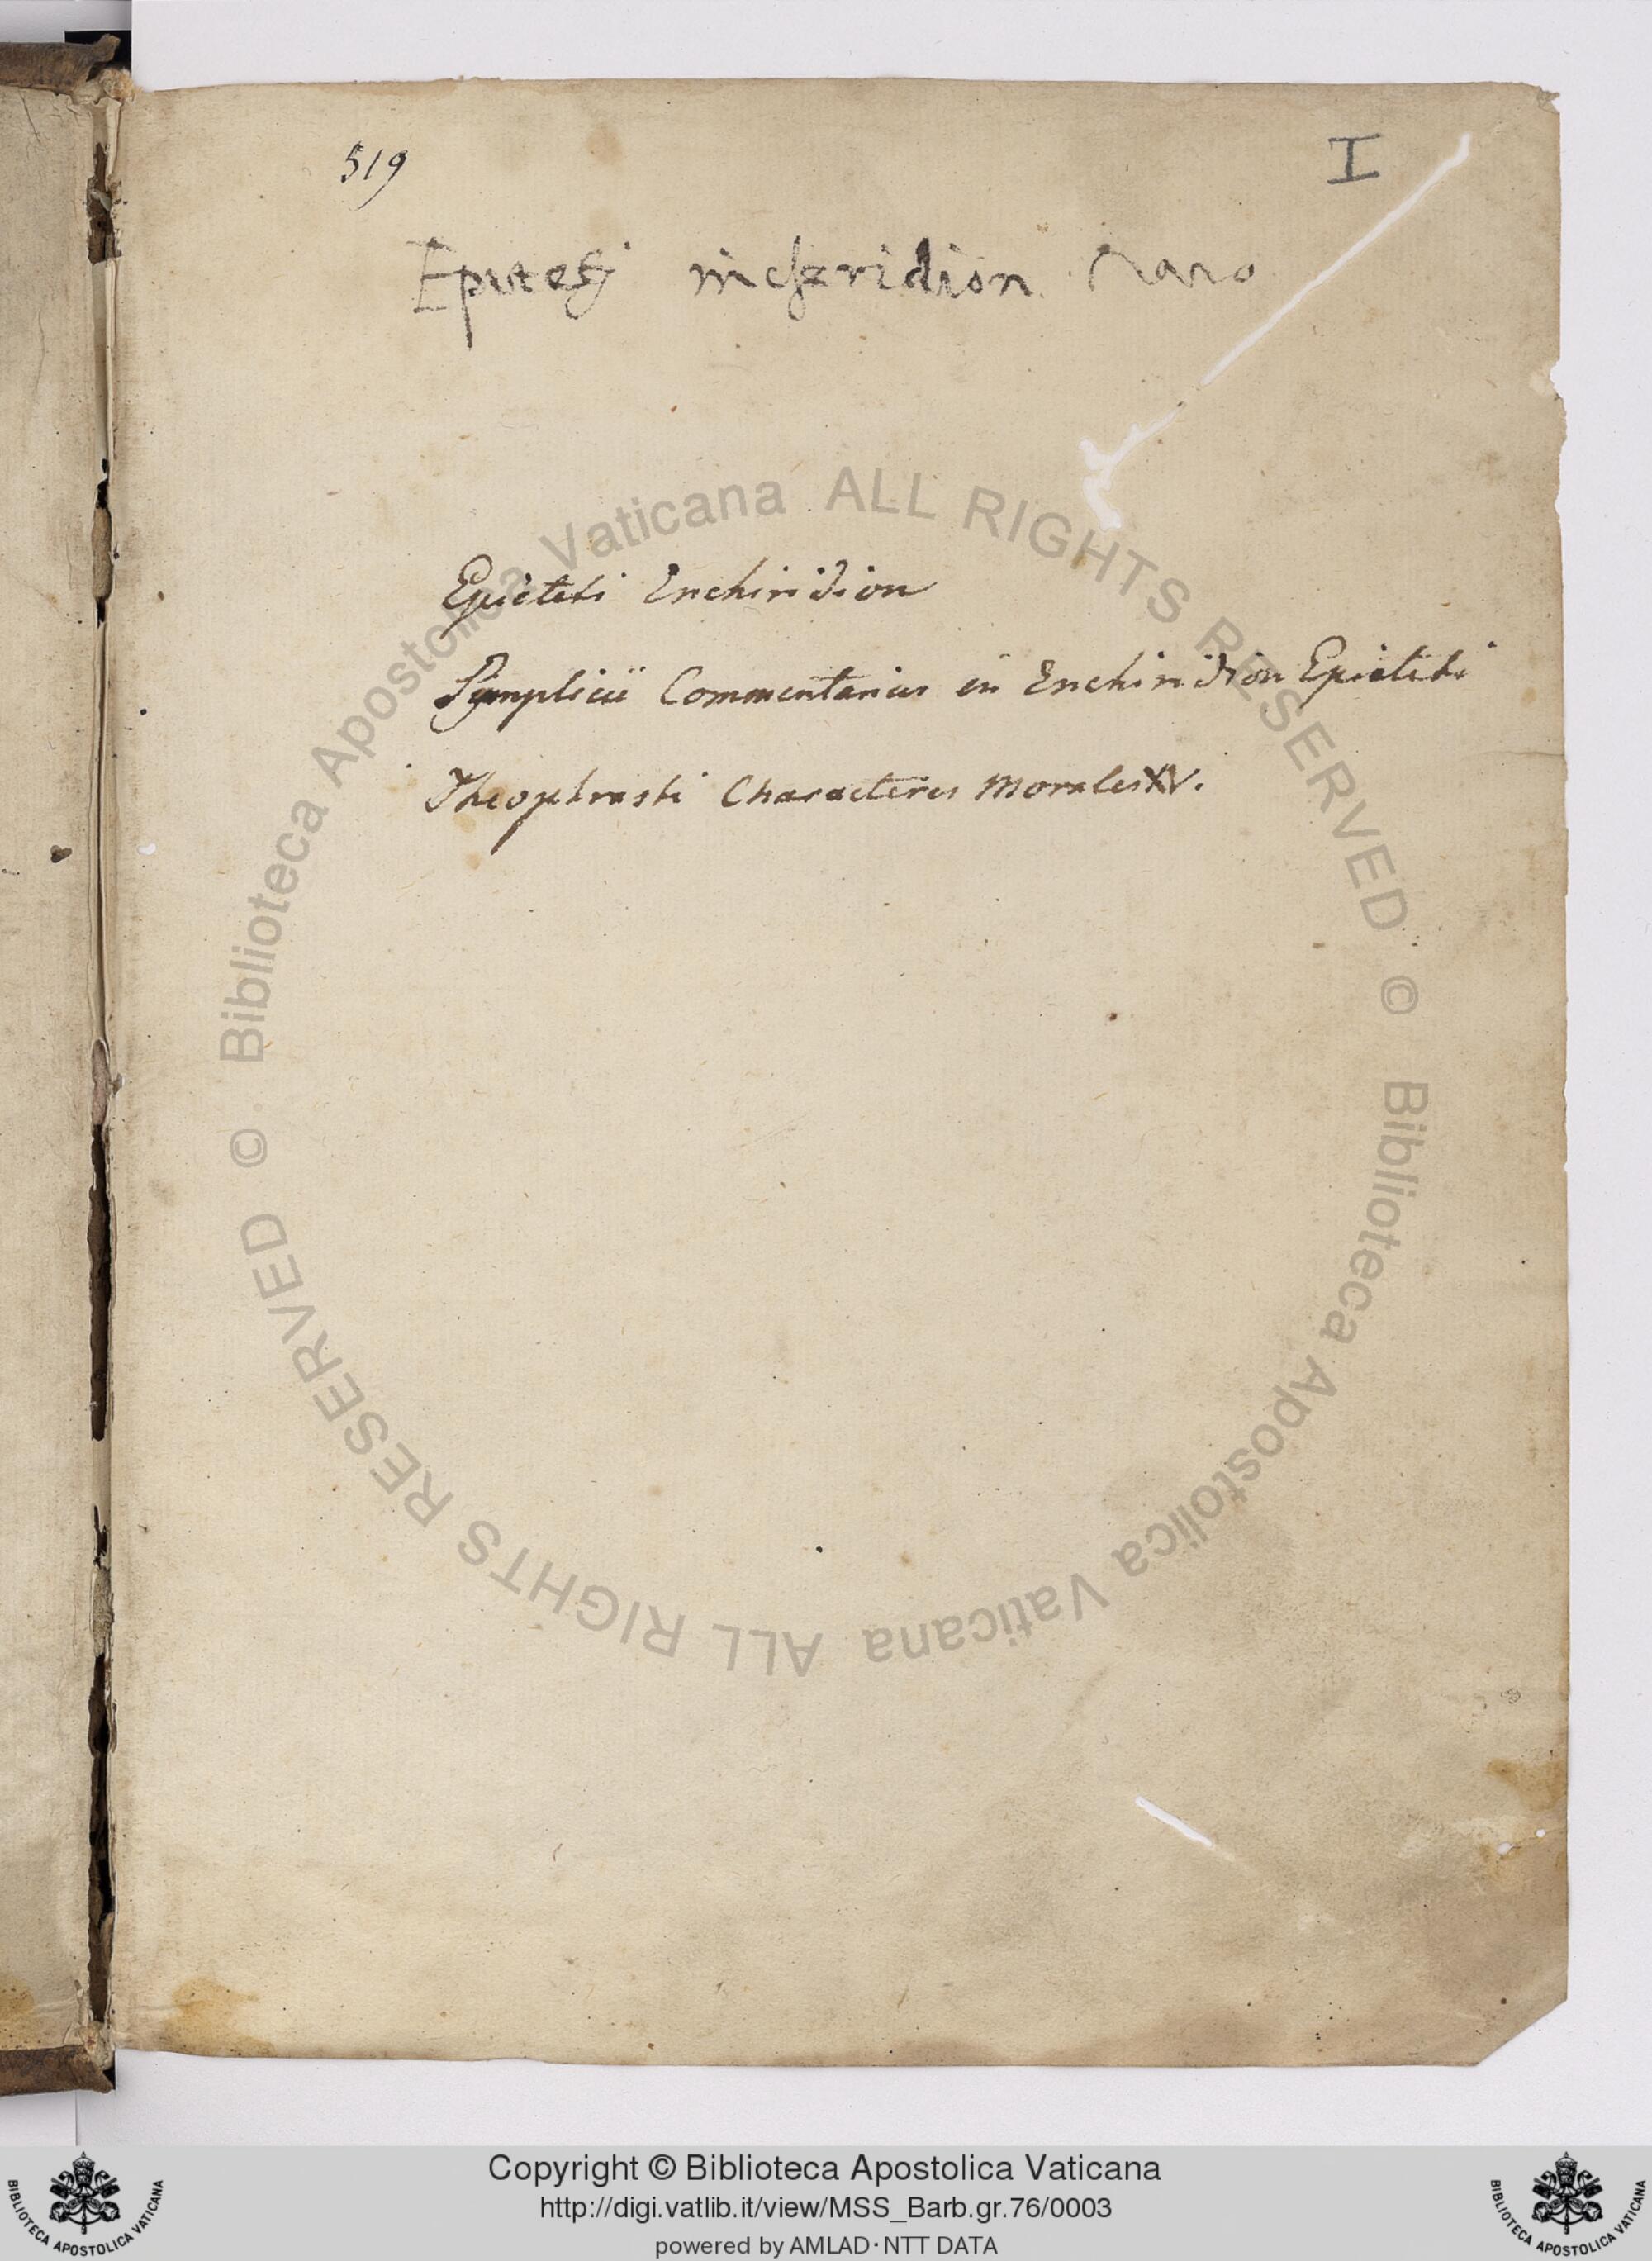 519
I
Epitetj incheridion Raro
Epicteti Enchiridion
Symplicii Commentarius in Enchiridion Epicteti
Theophrasti Characteres Morales XV.
© Biblioteca Apostolica Vaticana ALL RIGHTS RESERVED
© Biblioteca Apostolica Vaticana ALL RIGHTS RESERVED
Copyright © Biblioteca Apostolica Vaticana
http://digi.vatlib.it/view/MSS_Barb.gr.76/0003
powered by AMLAD·NTT DATA
BIBLIOTECA APOSTOLICA VATICANA
BIBLIOTECA APOSTOLICA VATICANA